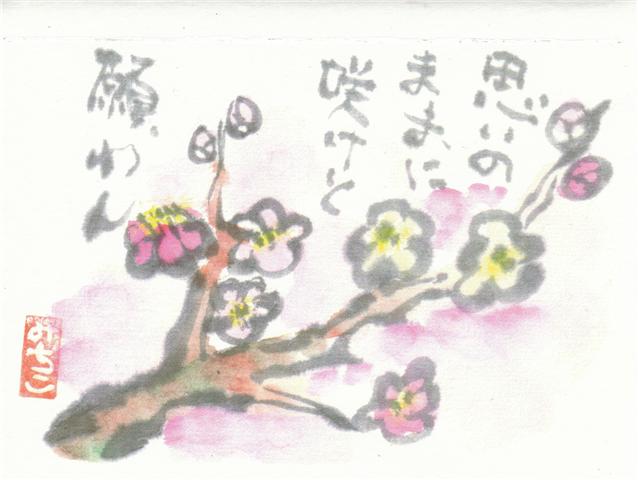 思いの
ままに
咲けと
願わん
みちこ